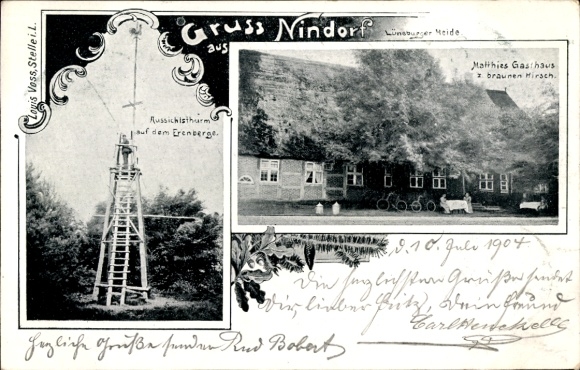 Gruss aus Nindorf
Lüneburger Heide.
Louis Voss, Stelle i.L.
Aussichtsthurm
auf dem Erenberge.
Matthies Gasthaus
z. braunen Hirsch.
d. 10. Juli 1904
Die herzlichsten Grüße sendet
Dir, lieber Fritz, Dein Freund
Carl
Herzliche Grüße sendet Rud Bobert